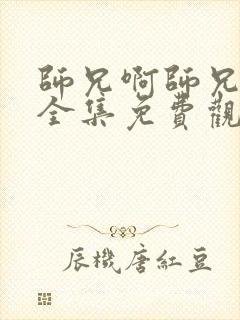 師兄啊師兄
全集免費觀
辰機唐紅豆